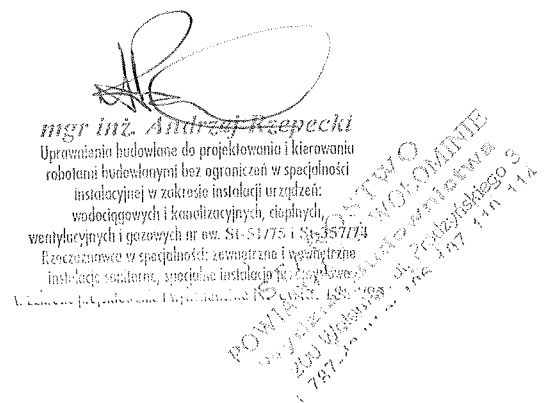 mgr inż. Andrzej Rzepecki
Uprawnienia budowlane do projektowania i kierowania
robotami budowlanymi bez ograniczeń w specjalności
instalacyjnej w zakresie instalacji urządzeń:
wodociągowych i kanalizacyjnych, cieplnych,
wentylacyjnych i gazowych nr ew. St-51/75 i St-357/74
Rzeczoznawca w specjalności: zewnętrzne i wewnętrzne
instalacje sanitarne, specjalne instalacje
STAROSTWO
POWIATOWE W WOŁOMINIE
Wydział Budownictwa
200 Wołomin, ul. Prądzyńskiego 3